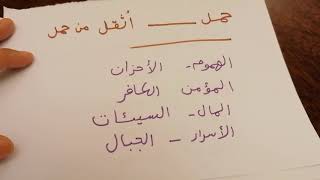 حمل ــــــ أثقل من حمل
الهموم - الأحزان
المؤمن الكافر
المال - السيئات
الأسرار - الجبال